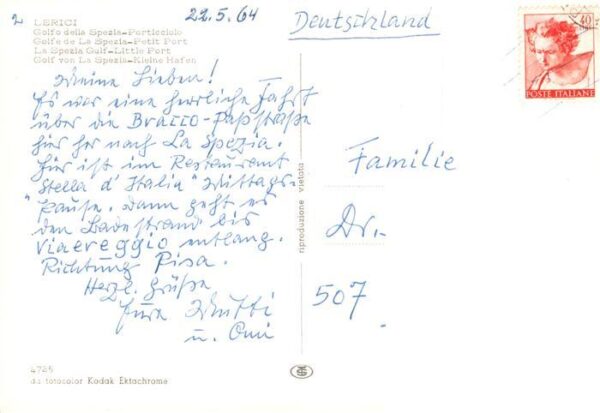 2
22.5.64
Deutschland
LERICI
Golfo della Spezia-Porticciolo
Golfe de La Spezia-Petit Port
La Spezia Gulf-Little Port
Golf von La Spezia-Kleine Hafen
40
POSTE ITALIANE
Meine Lieben!
Es war eine herrliche Fahrt
über die Bracco-Paßstraße
hier her nach La Spezia.
Hier ist im Restaurant
"Stella d'Italia" Mittags-
Pause. Dann geht es
den Badestrand bis
Viareggio entlang.
Richtung Pisa.
Herzl. Grüße
Eure Mutti
u. Omi
Familie
Dr.
507
riproduzione vietata
4765
da fotocolor Kodak Ektachrome